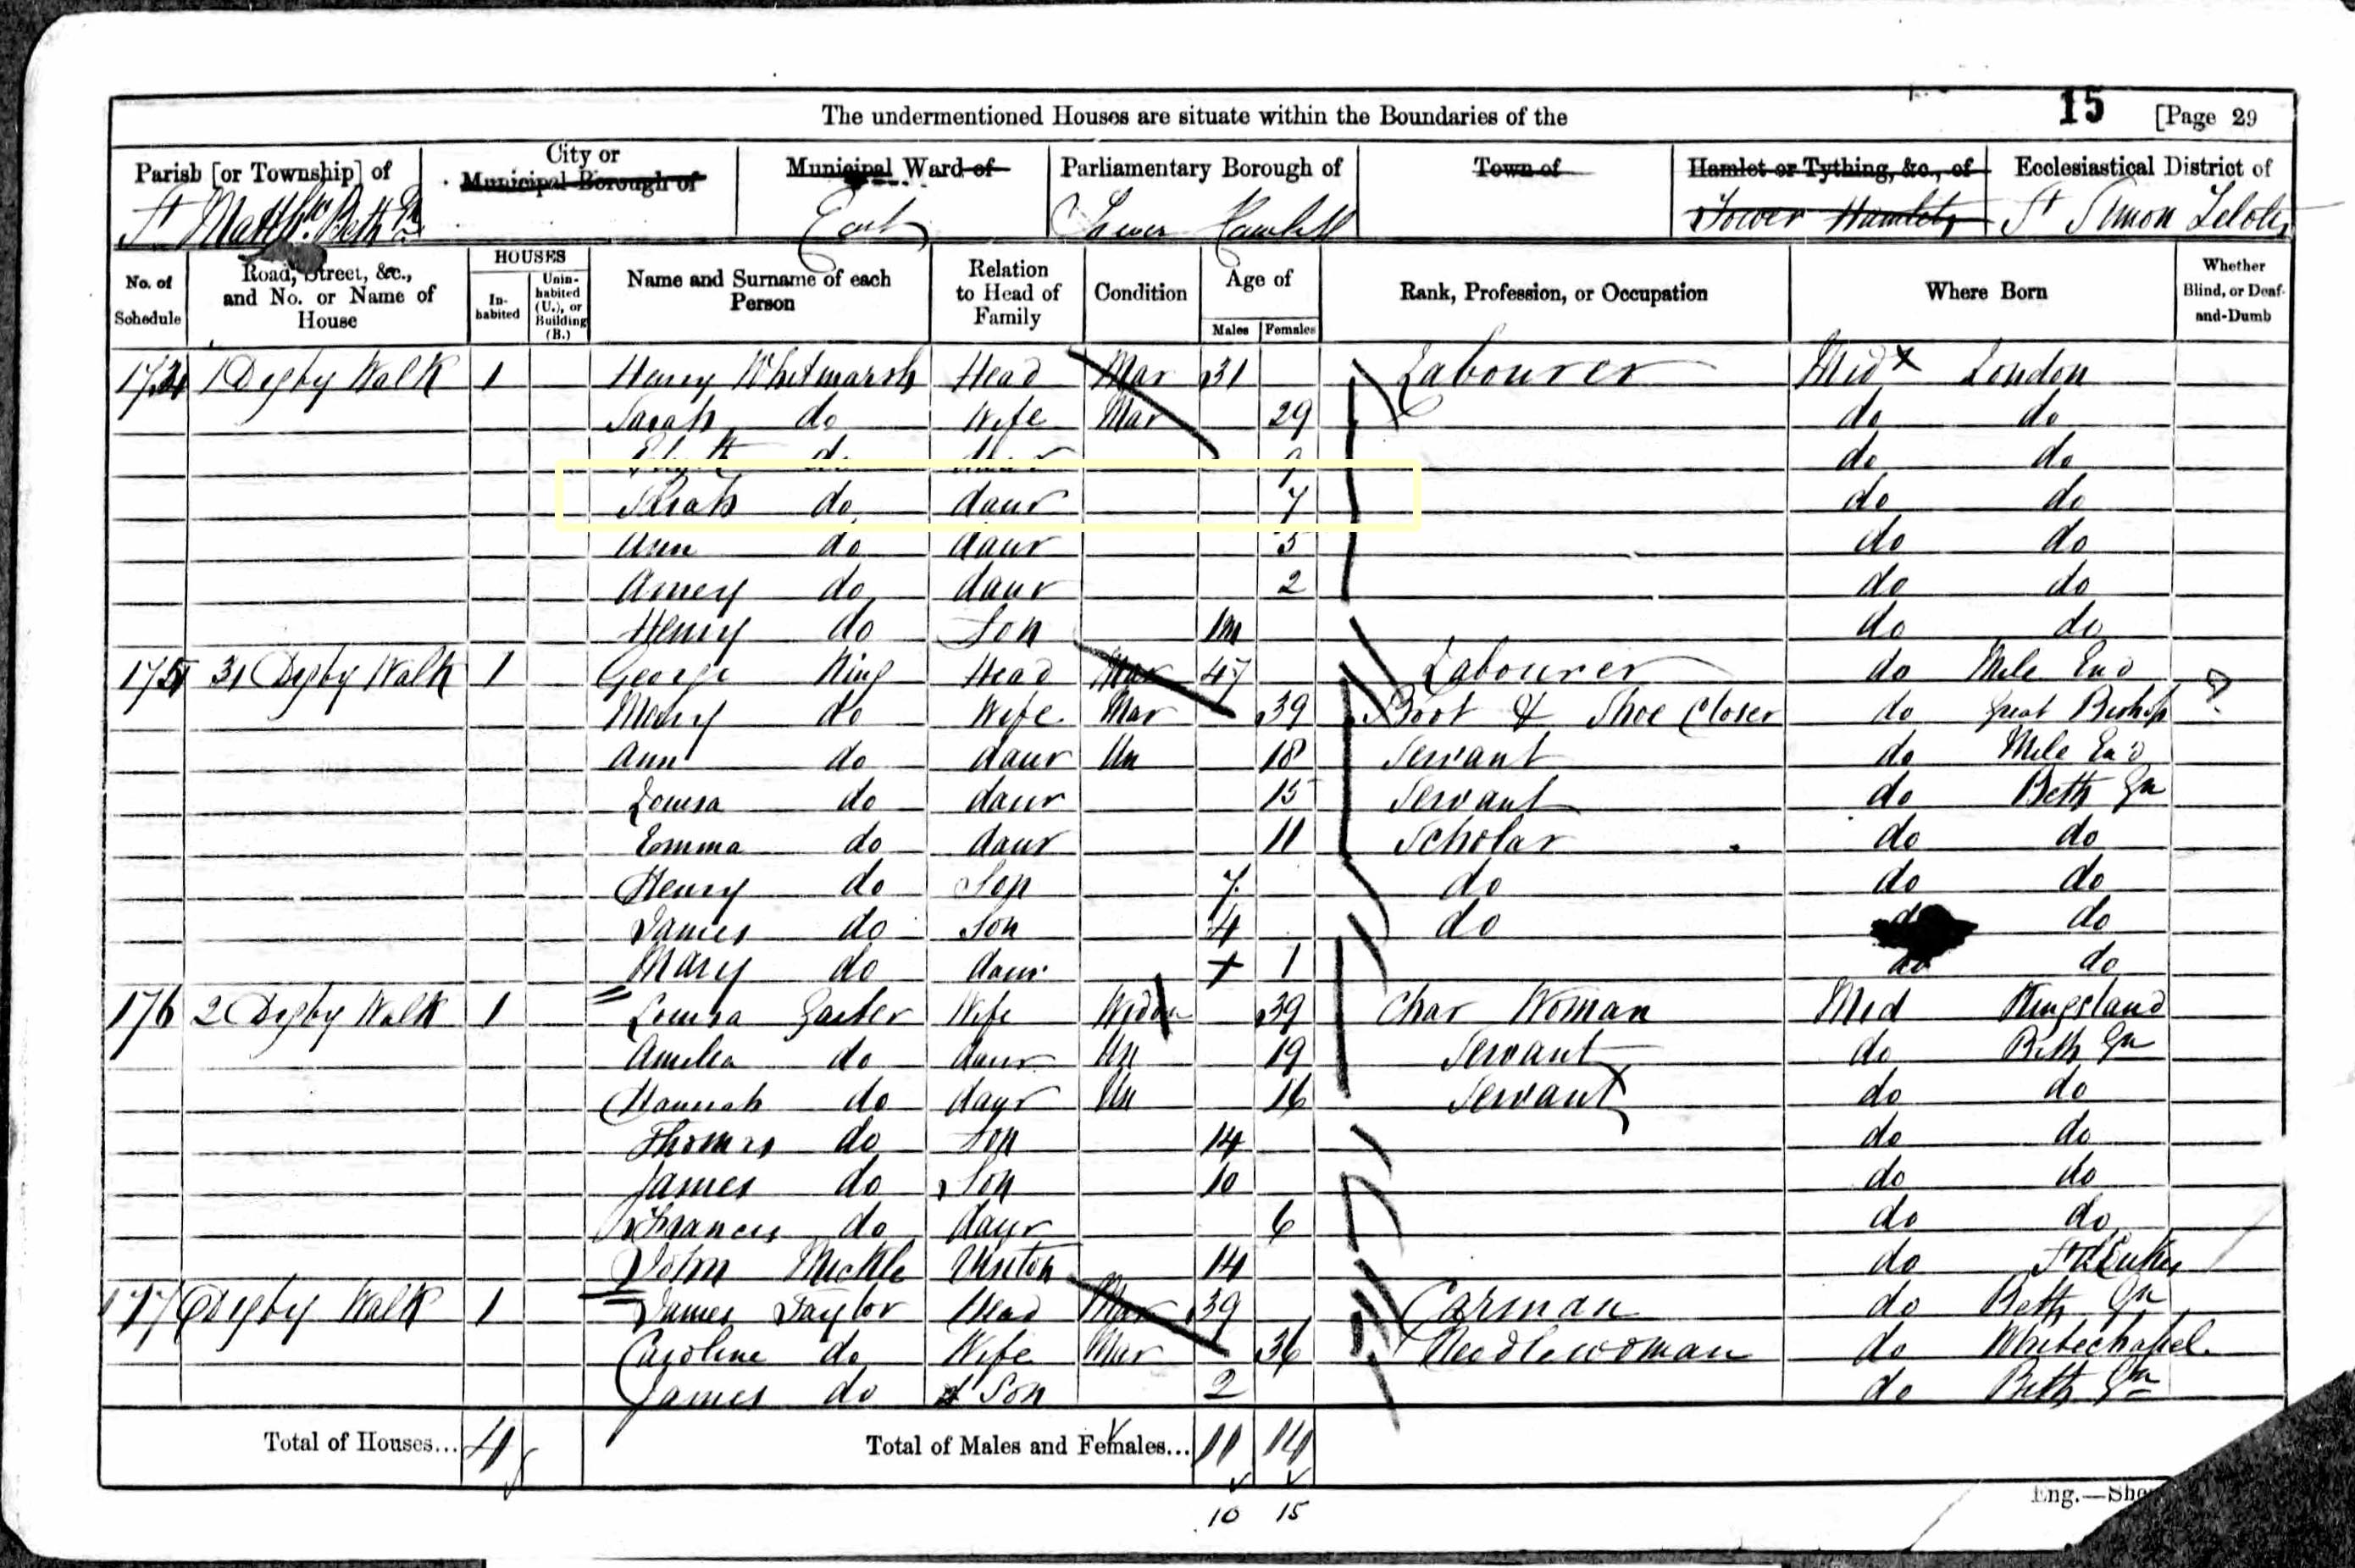 The undermentioned Houses are situate within the Boundaries of the 15 [Page 29
Parish [or Township] of City or Municipal Borough of Municipal Ward of Parliamentary Borough of Town of Hamlet or Tything, &c., of Ecclesiastical District of
St Matthw. Beth Gn East Tower Hamlets Tower Hamlets St Simon Zelotes
No. of Schedule Road, Street, &c., and No. or Name of House HOUSES Inhabited Uninhabited (U.), or Building (B.) Name and Surname of each Person Relation to Head of Family Condition Age of Males Females Rank, Profession, or Occupation Where Born Whether Blind, or Deaf-and-Dumb
174 1 Digby Walk 1 Henry Whitmarsh Head Mar 31 Labourer Midx London
Sarah do Wife Mar 29 do do
do daur 9 do do
do daur 7 do do
Ann do daur 5 do do
Amey do daur 2 do do
Henry do Son 1m do do
175 31 Digby Walk 1 George King Head Mar 47 Labourer do Mile End
Mary do Wife Mar 39 Boot & Shoe Closer do Great Bishop
Ann do daur Un 18 Servant do Mile End
Louisa do daur 15 Servant do Beth Gn
Emma do daur 11 Scholar do do
Henry do Son 7 do do do
James do Son 4 do do do
Mary do daur 1 do do
176 2 Digby Walk 1 Louisa Wife Widow 39 Char Woman Mid Kingsland
Amelia do daur Un 19 Servant do Beth Gn
Hannah do daur Un 16 Servant do do
Thomas do Son 14 do do
James do Son 10 do do
Frances do daur 6 do do
John Mickle 14 do St Lukes
177 Digby Walk 1 James Taylor Head Mar 39 Carman do Beth Gn
Caroline do Wife Mar 36 Needlewoman do Whitechapel
James do Son 2 do Beth Gn
Total of Houses... 4 Total of Males and Females... 11 14
10 15
Eng.—